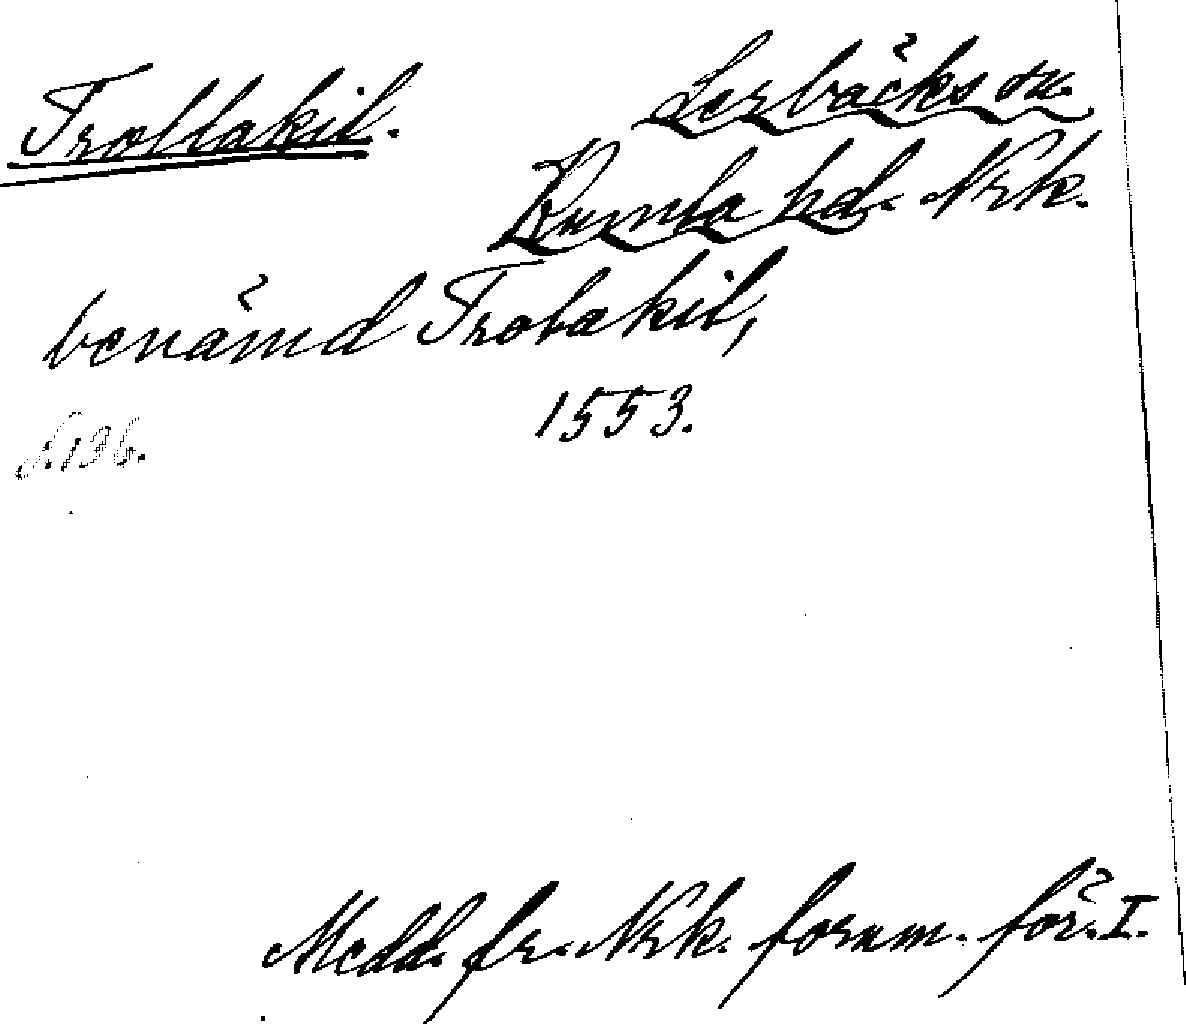 Trollakil.
Lerbäcks sn.
Kumla hd. Nrk.
benämd Trolakil,
1553.
S. 136.
Medd. fr. Nrk. fornm. för. I.